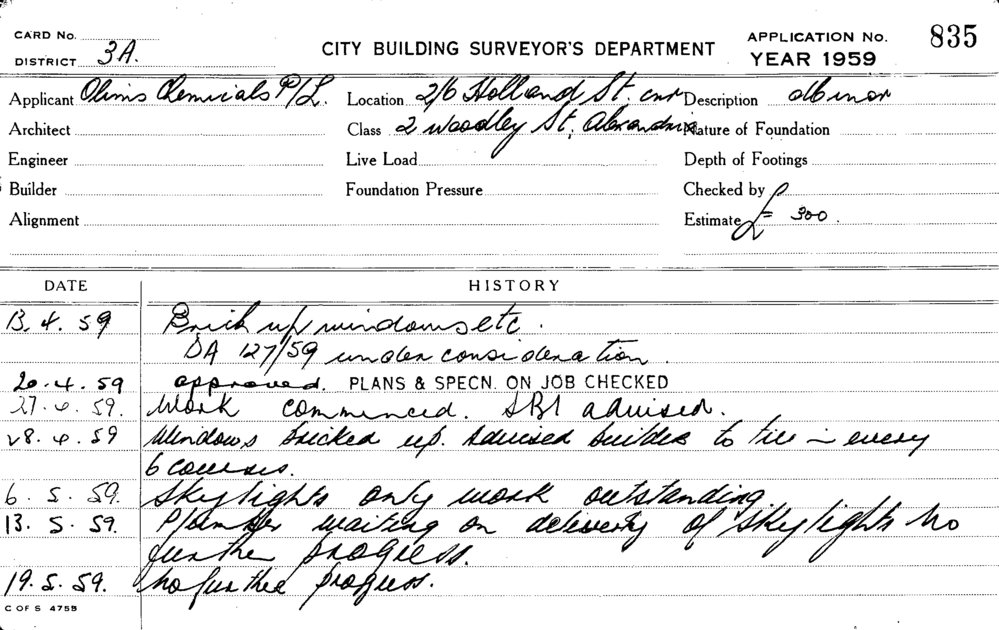 CARD No.
DISTRICT 3A.
CITY BUILDING SURVEYOR'S DEPARTMENT
APPLICATION No. 835
YEAR 1959
Applicant Olims Chemicals P/L. Location 2/6 Holland St. cnr Description
Architect Class 2 Woodley St, Alexandria Nature of Foundation
Engineer Live Load Depth of Footings
Builder Foundation Pressure Checked by
Alignment Estimate £ 300.
DATE HISTORY
13. 4. 59 Brick up windows etc.
DA 127/59 under consideration.
20. 4. 59 approved. PLANS & SPECN. ON JOB CHECKED
27. 4. 59. Work commenced. SBI advised.
28. 4. 59 Windows bricked up. Advised builder to tie in every
6 courses.
6. 5. 59. Skylights only work outstanding.
13. 5. 59. Plumber waiting on delivery of skylights No
further progress.
19. 5. 59. No further progress.
C OF S 475B